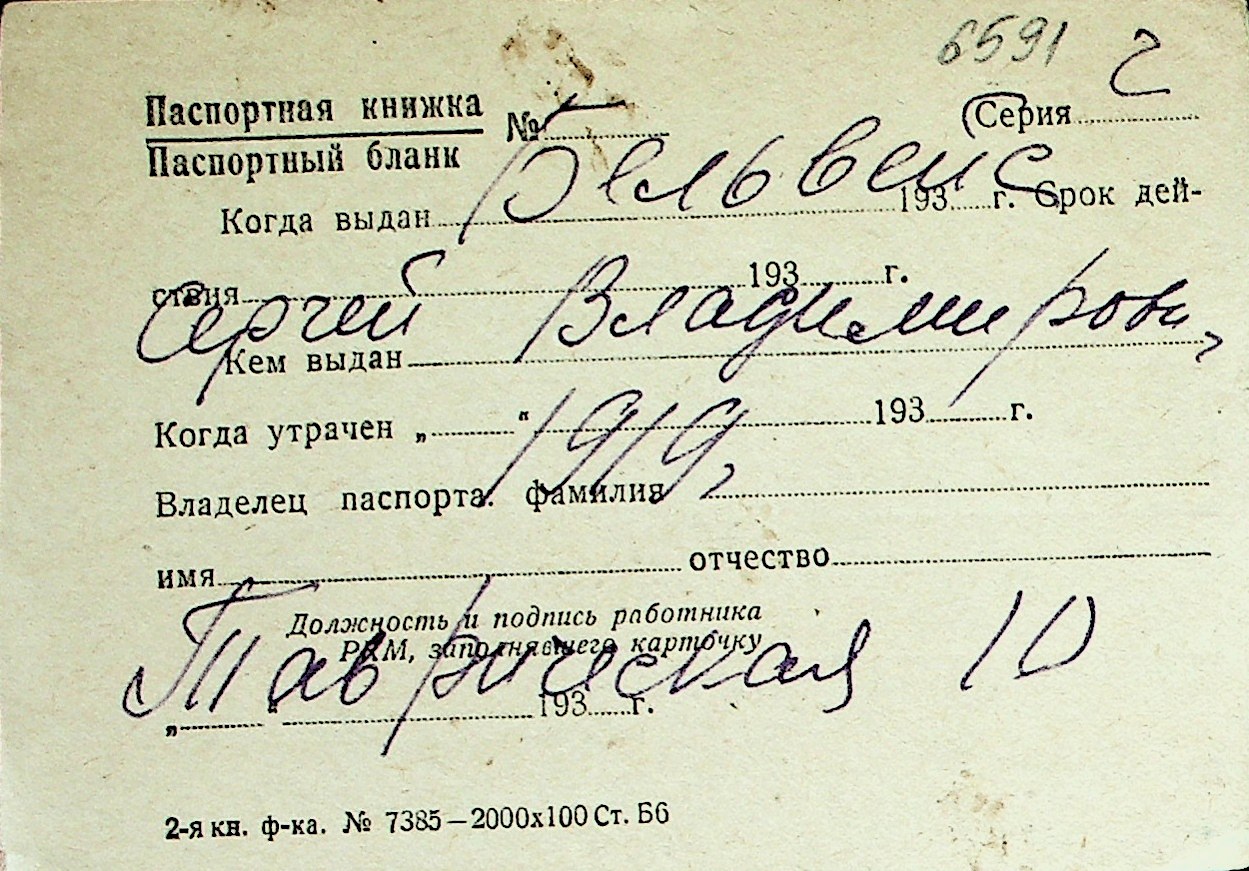 6591 2
Паспортная книжка № (Серия
Паспортный бланк
Бельвейс
Когда выдан 193 г. Срок дей-
ствия 193 г.
Сергей Владимирови,
Кем выдан
Когда утрачен „ “ 193 г.
1919,
Владелец паспорта: фамилия
имя отчество
Должность и подпись работника
РКМ, заполнявшего карточку
Таврическая 10
„ “ 193 г.
2-я кн. ф-ка. № 7385—2000x100 Ст. Б6